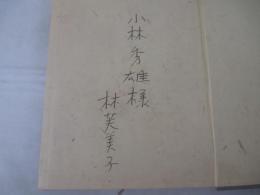 小林秀雄様
林芙美子